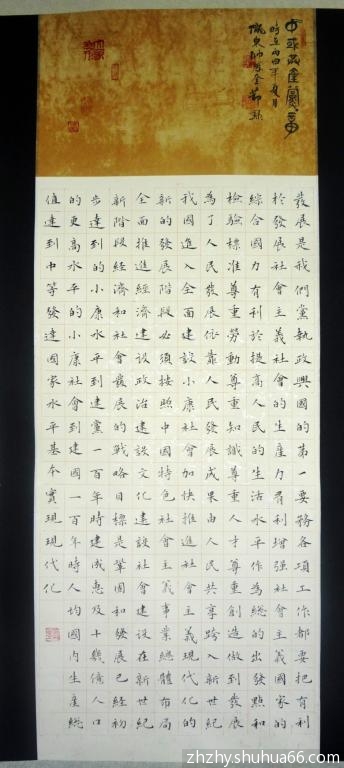 時在丙申年夏月
發展是我們黨執政興國的第一要務各項工作都要把有利
於發展社會主義社會的生產力有利增強社會主義國家的
綜合國力有利於提高人民的生活水平作為總的出發點和
檢驗標准尊重勞動尊重知識尊重人才尊重創造做到發展
為了人民發展依靠人民發展成果由人民共享跨入新世紀
我國進入全面建設小康社會加快推進社會主義現代化的
新的發展階段必須按照中國特色社會主義事業總體布局
全面推進經濟建設政治建設文化建設社會建設在新世紀
新階段經濟和社會發展的戰略目標是鞏固和發展已經初
步達到的小康水平到建黨一百年時建成惠及十幾億人口
的更高水平的小康社會到建國一百年時人均國內生產總
值達到中等發達國家水平基本實現現代化
zhzhy.shuhua66.com